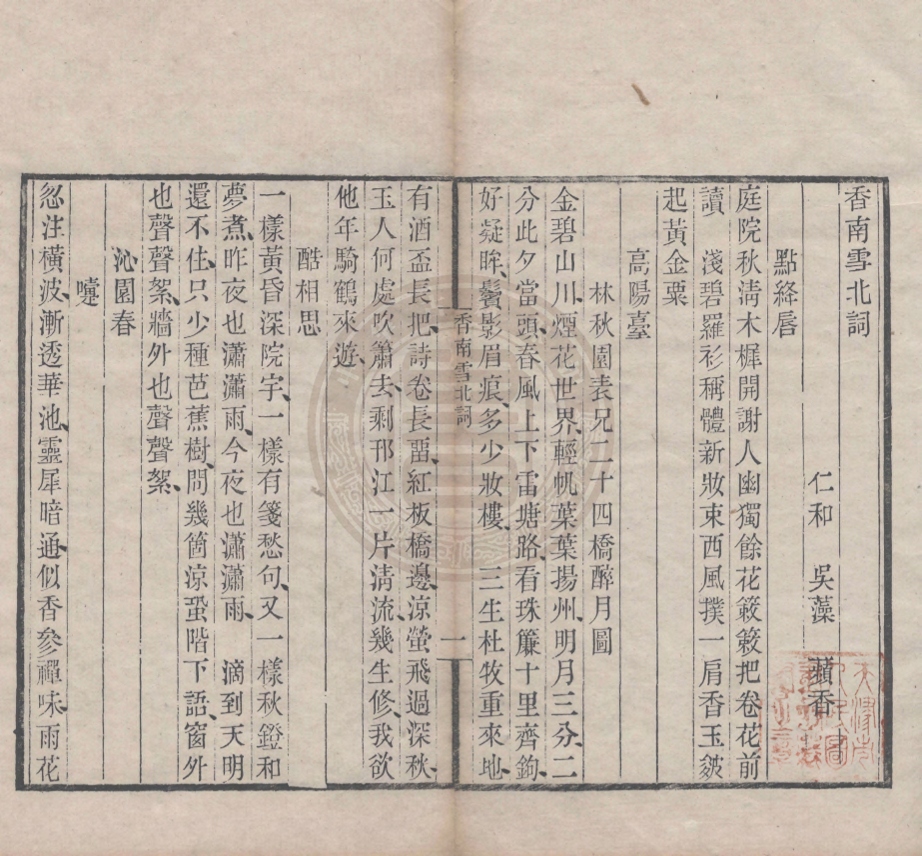 香南雪北詞
仁和　吳藻　蘋香
點絳唇
庭院秋淸木樨開謝人幽獨餘花簌簌把卷花前
讀　淺碧羅衫稱體新妝束西風撲一肩香玉皴
起黃金粟
高陽臺
林秋園表兄二十四橋醉月圖
金碧山川、煙花世界、輕帆葉葉揚州、明月三分、二
分此夕當頭、春風上下雷塘路、看珠簾十里齊鉤、
好凝眸、鬢影眉痕、多少妝樓、　三生杜牧重來地、
香南雪北詞
一
有酒盃長把、詩卷長畱、紅板橋邊、涼螢飛過深秋、
玉人何處吹簫去、剩邗江一片淸流、幾生修、我欲
他年騎鶴來遊、
酷相思
一樣黃昏深院宇、一樣有箋愁句、又一樣秋鐙和
夢煮、昨夜也瀟瀟雨、今夜也瀟瀟雨、　滴到天明
還不住、只少種芭蕉樹、問幾箇涼蛩階下語、窗外
也聲聲絮、牆外也聲聲絮、
沁園春
嚏
忽注橫波、漸透華池、靈犀暗通、似香參禪味、雨花